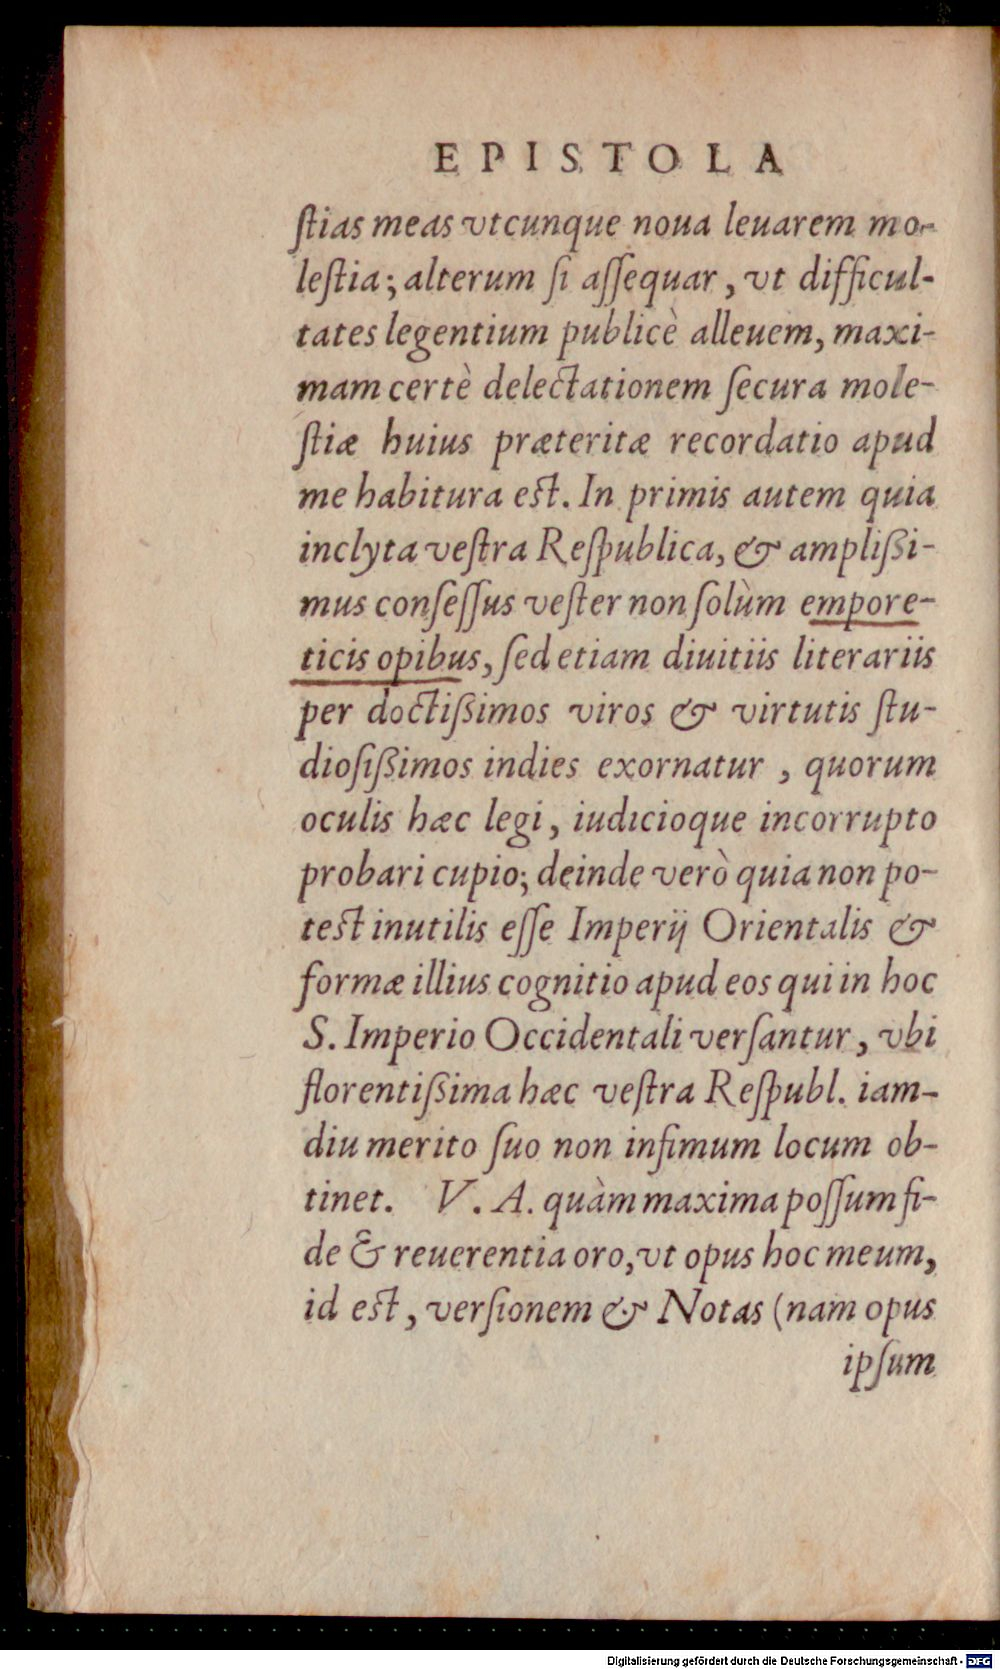 EPISTOLA
ſtias meas vtcunque noua leuarem mo-
leſtia; alterum ſi aſſequar, vt difficul-
tates legentium publicè alleuem, maxi-
mam certè delectationem ſecura mole-
ſtiæ huius præteritæ recordatio apud
me habitura est. In primis autem quia
inclyta veſtra Reſpublica, & ampliſſi-
mus conſeſſus veſter non ſolùm empore-
ticis opibus, ſed etiam diuitiis literariis
per doctiſſimos viros & virtutis ſtu-
dioſiſſimos indies exornatur, quorum
oculis hæc legi, iudicioque incorrupto
probari cupio; deinde verò quia non po-
test inutilis eſſe Imperij Orientalis &
formæ illius cognitio apud eos qui in hoc
S. Imperio Occidentali verſantur, vbi
florentiſſima hæc veſtra Reſpubl. iam-
diu merito ſuo non infimum locum ob-
tinet. V. A. quàm maxima poſſum fi-
de & reuerentia oro, vt opus hoc meum,
id est, verſionem & Notas (nam opus
ipſum
Digitalisierung gefördert durch die Deutsche Forschungsgemeinschaft - DFG